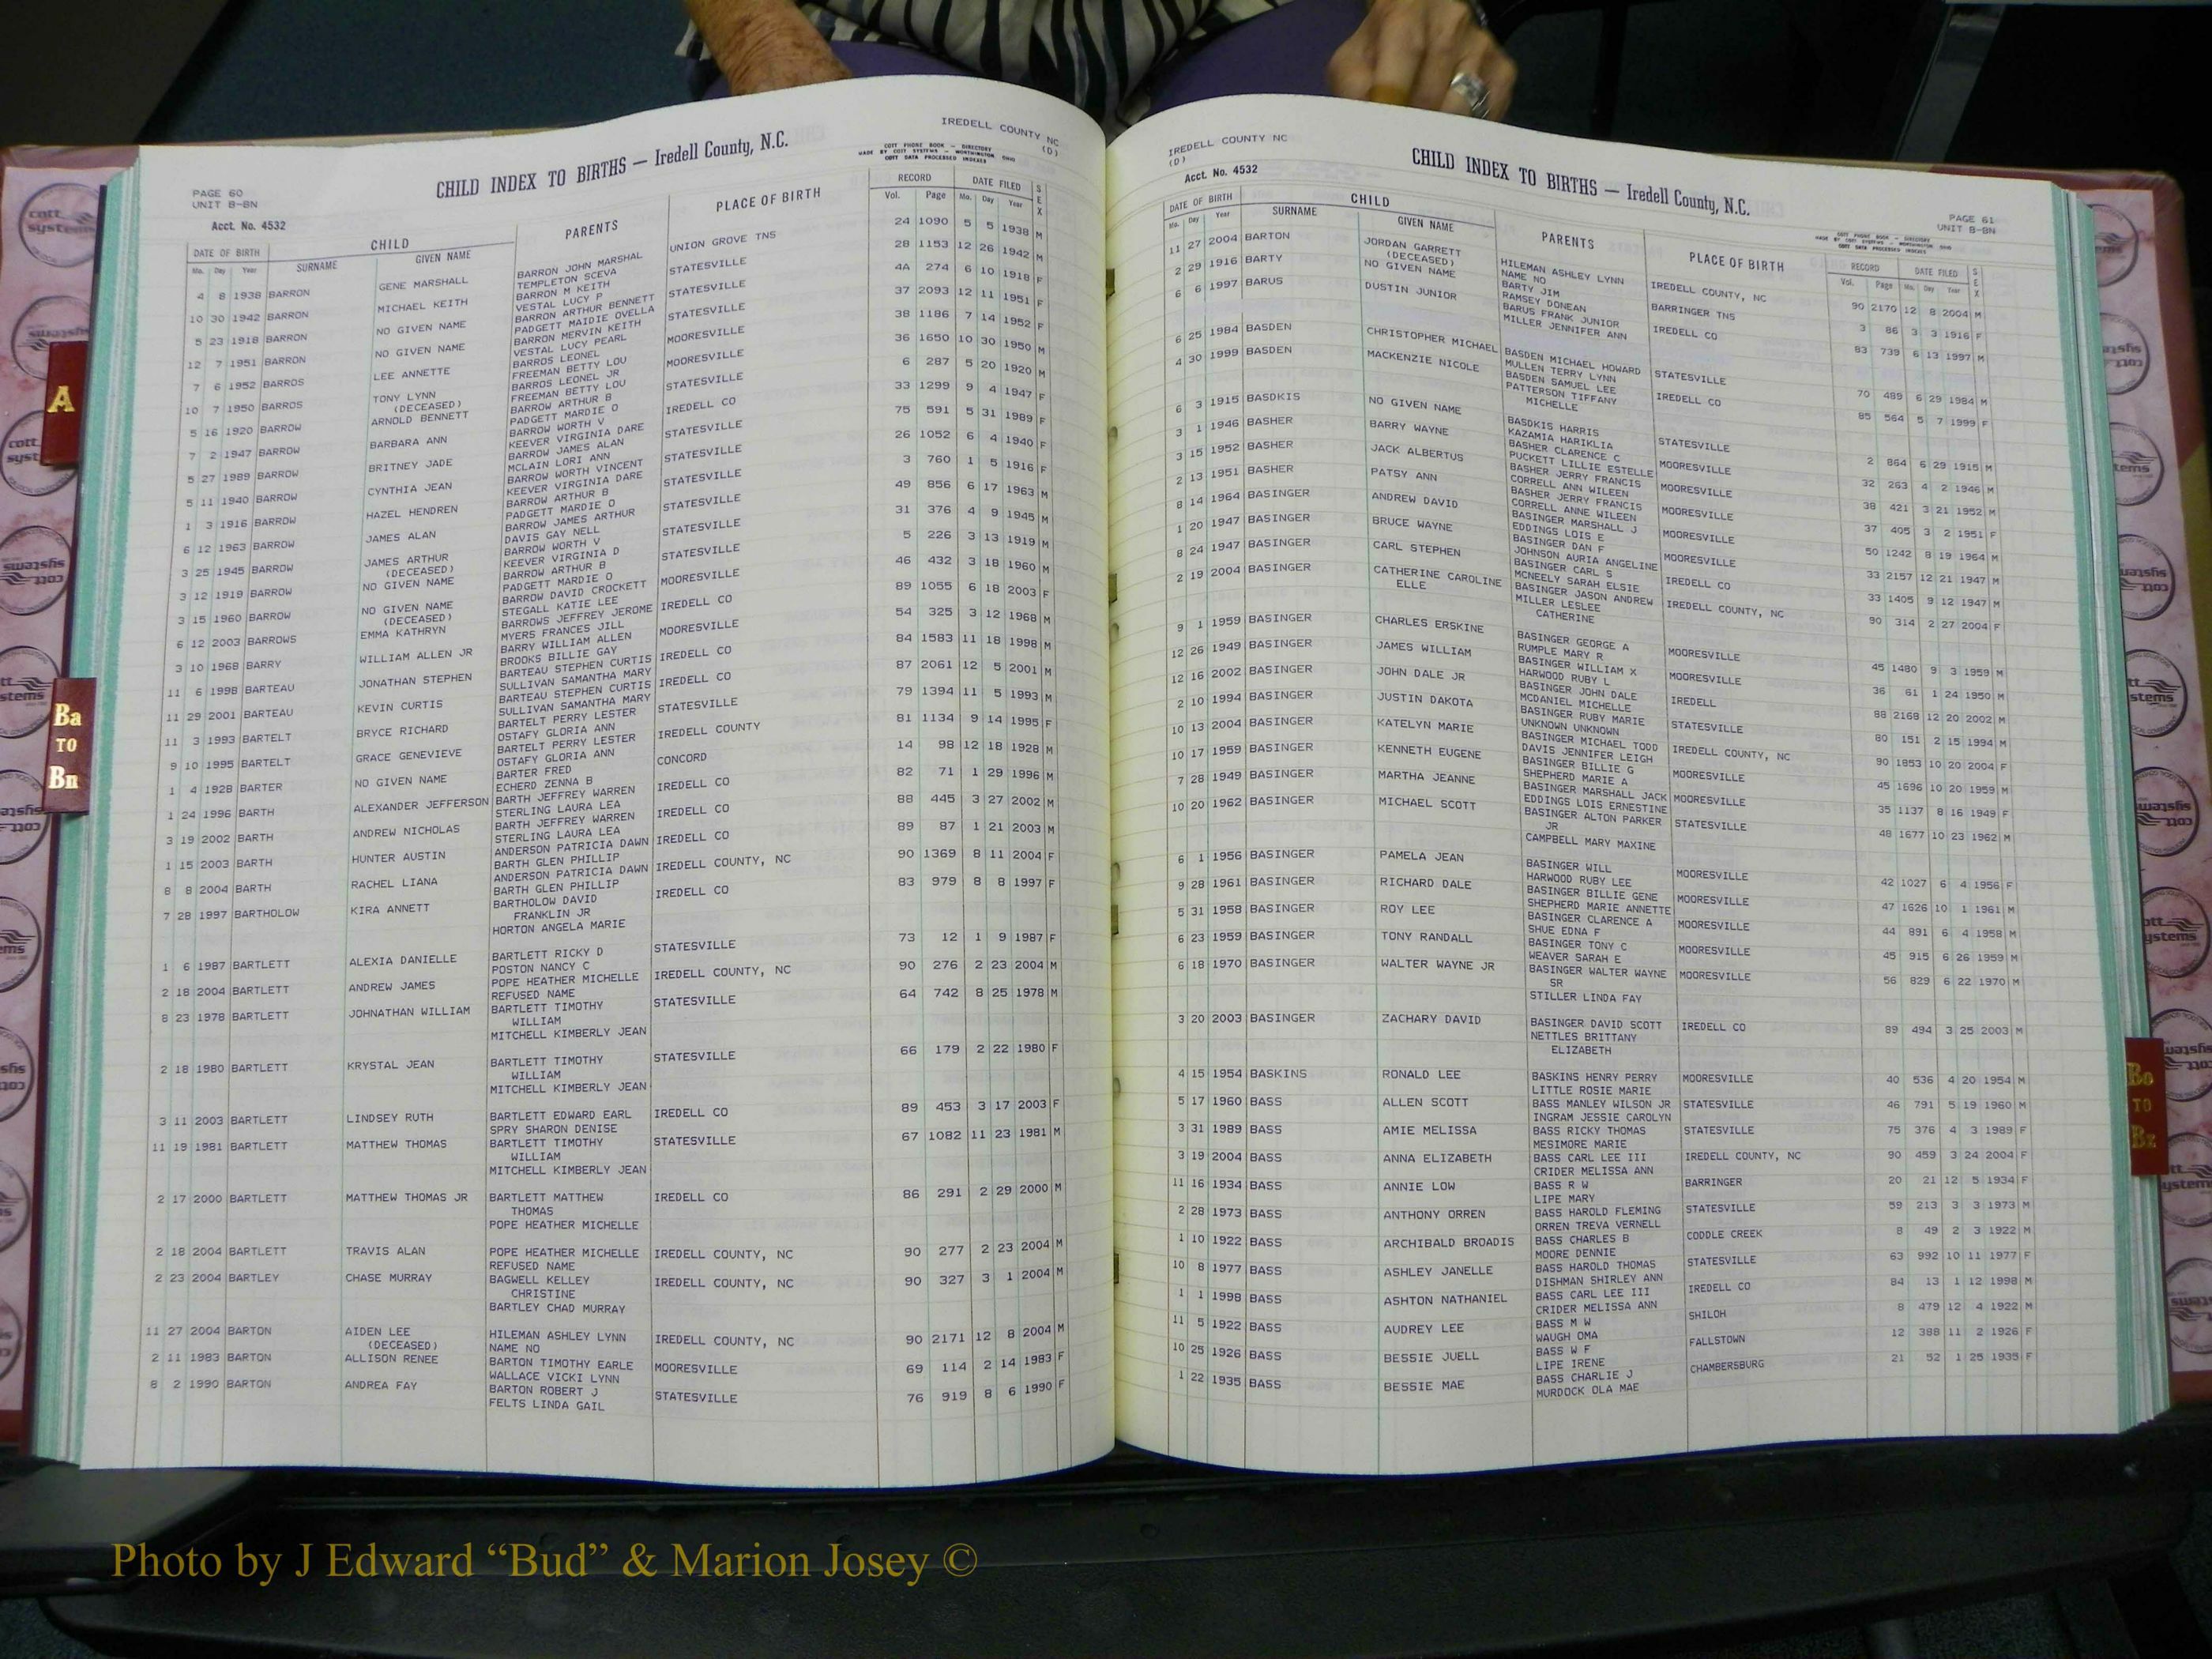 IREDELL COUNTY NC
(D)
CHILD INDEX TO BIRTHS — Iredell County, N.C.
COTT PHONE BOOK — DIRECTORY
MADE BY COTT SYSTEMS — WORTHINGTON OHIO
COTT DATA PROCESSED INDEXES
PAGE 60
UNIT B-BN
Acct. No. 4532
DATE OF BIRTH CHILD PARENTS PLACE OF BIRTH RECORD DATE FILED SEX
Mo. Day Year SURNAME GIVEN NAME Vol. Page Mo. Day Year
4 8 1938 BARRON GENE MARSHALL BARRON JOHN MARSHAL UNION GROVE TNS 24 1090 5 5 1938 M
TEMPLETON SCEVA
10 30 1942 BARRON MICHAEL KEITH BARRON M KEITH STATESVILLE 28 1153 12 26 1942 M
VESTAL LUCY P
5 23 1918 BARRON NO GIVEN NAME BARRON ARTHUR BENNETT STATESVILLE 4A 274 6 10 1918 F
PADGETT MAIDIE OVELLA
12 7 1951 BARRON NO GIVEN NAME BARRON MERVIN KEITH STATESVILLE 37 2093 12 11 1951 F
VESTAL LUCY PEARL
7 6 1952 BARROS LEE ANNETTE BARROS LEONEL MOORESVILLE 38 1186 7 14 1952 F
FREEMAN BETTY LOU
10 7 1950 BARROS TONY LYNN BARROS LEONEL JR MOORESVILLE 36 1650 10 30 1950 M
(DECEASED) FREEMAN BETTY LOU
5 16 1920 BARROW ARNOLD BENNETT BARROW ARTHUR B STATESVILLE 6 287 5 20 1920 M
PADGETT MARDIE O
7 2 1947 BARROW BARBARA ANN BARROW WORTH V STATESVILLE 33 1299 9 4 1947 F
KEEVER VIRGINIA DARE
5 27 1989 BARROW BRITNEY JADE BARROW JAMES ALAN IREDELL CO 75 591 5 31 1989 F
MCLAIN LORI ANN
5 11 1940 BARROW CYNTHIA JEAN BARROW WORTH VINCENT STATESVILLE 26 1052 6 4 1940 F
KEEVER VIRGINIA DARE
1 3 1916 BARROW HAZEL HENDREN BARROW ARTHUR B STATESVILLE 3 760 1 5 1916 F
PADGETT MARDIE O
6 12 1963 BARROW JAMES ALAN BARROW JAMES ARTHUR STATESVILLE 49 856 6 17 1963 M
DAVIS GAY NELL
3 25 1945 BARROW JAMES ARTHUR BARROW WORTH V STATESVILLE 31 376 4 9 1945 M
(DECEASED) KEEVER VIRGINIA D
3 12 1919 BARROW NO GIVEN NAME BARROW ARTHUR B STATESVILLE 5 226 3 13 1919 M
PADGETT MARDIE O
3 15 1960 BARROW NO GIVEN NAME BARROW DAVID CROCKETT MOORESVILLE 46 432 3 18 1960 M
(DECEASED) STEGALL KATIE LEE
6 12 2003 BARROWS EMMA KATHRYN BARROWS JEFFREY JEROME IREDELL CO 89 1055 6 18 2003 F
MYERS FRANCES JILL
3 10 1968 BARRY WILLIAM ALLEN JR BARRY WILLIAM ALLEN MOORESVILLE 54 325 3 12 1968 M
BROOKS BILLIE GAY
11 6 1998 BARTEAU JONATHAN STEPHEN BARTEAU STEPHEN CURTIS IREDELL CO 84 1583 11 18 1998 M
SULLIVAN SAMANTHA MARY
11 29 2001 BARTEAU KEVIN CURTIS BARTEAU STEPHEN CURTIS IREDELL CO 87 2061 12 5 2001 M
SULLIVAN SAMANTHA MARY
11 3 1993 BARTELT BRYCE RICHARD BARTELT PERRY LESTER STATESVILLE 79 1394 11 5 1993 M
OSTAFY GLORIA ANN
9 10 1995 BARTELT GRACE GENEVIEVE BARTELT PERRY LESTER IREDELL COUNTY 81 1134 9 14 1995 F
OSTAFY GLORIA ANN
1 4 1928 BARTER NO GIVEN NAME BARTER FRED CONCORD 14 98 12 18 1928 M
ECHERD ZENNA B
1 24 1996 BARTH ALEXANDER JEFFERSON BARTH JEFFREY WARREN IREDELL CO 82 71 1 29 1996 M
STERLING LAURA LEA
3 19 2002 BARTH ANDREW NICHOLAS BARTH JEFFREY WARREN IREDELL CO 88 445 3 27 2002 M
STERLING LAURA LEA
1 15 2003 BARTH HUNTER AUSTIN ANDERSON PATRICIA DAWN IREDELL CO 89 87 1 21 2003 M
BARTH GLEN PHILLIP
8 8 2004 BARTH RACHEL LIANA ANDERSON PATRICIA DAWN IREDELL COUNTY, NC 90 1369 8 11 2004 F
BARTH GLEN PHILLIP
7 28 1997 BARTHOLOW KIRA ANNETT BARTHOLOW DAVID IREDELL CO 83 979 8 8 1997 F
FRANKLIN JR
HORTON ANGELA MARIE
1 6 1987 BARTLETT ALEXIA DANIELLE BARTLETT RICKY D STATESVILLE 73 12 1 9 1987 F
POSTON NANCY C
2 18 2004 BARTLETT ANDREW JAMES POPE HEATHER MICHELLE IREDELL COUNTY, NC 90 276 2 23 2004 M
REFUSED NAME
8 23 1978 BARTLETT JOHNATHAN WILLIAM BARTLETT TIMOTHY STATESVILLE 64 742 8 25 1978 M
WILLIAM
MITCHELL KIMBERLY JEAN
2 18 1980 BARTLETT KRYSTAL JEAN BARTLETT TIMOTHY STATESVILLE 66 179 2 22 1980 F
WILLIAM
MITCHELL KIMBERLY JEAN
3 11 2003 BARTLETT LINDSEY RUTH BARTLETT EDWARD EARL IREDELL CO 89 453 3 17 2003 F
SPRY SHARON DENISE
11 19 1981 BARTLETT MATTHEW THOMAS BARTLETT TIMOTHY STATESVILLE 67 1082 11 23 1981 M
WILLIAM
MITCHELL KIMBERLY JEAN
2 17 2000 BARTLETT MATTHEW THOMAS JR BARTLETT MATTHEW IREDELL CO 86 291 2 29 2000 M
THOMAS
POPE HEATHER MICHELLE
2 18 2004 BARTLETT TRAVIS ALAN POPE HEATHER MICHELLE IREDELL COUNTY, NC 90 277 2 23 2004 M
REFUSED NAME
2 23 2004 BARTLEY CHASE MURRAY BAGWELL KELLEY IREDELL COUNTY, NC 90 327 3 1 2004 M
CHRISTINE
BARTLEY CHAD MURRAY
11 27 2004 BARTON AIDEN LEE HILEMAN ASHLEY LYNN IREDELL COUNTY, NC 90 2171 12 8 2004 M
(DECEASED) NAME NO
2 11 1983 BARTON ALLISON RENEE BARTON TIMOTHY EARLE MOORESVILLE 69 114 2 14 1983 F
WALLACE VICKI LYNN
8 2 1990 BARTON ANDREA FAY BARTON ROBERT J STATESVILLE 76 919 8 6 1990 F
FELTS LINDA GAIL
IREDELL COUNTY NC
(D)
Acct. No. 4532
CHILD INDEX TO BIRTHS — Iredell County, N.C.
PAGE 61
UNIT B-BN
COTT PHONE BOOK — DIRECTORY
MADE BY COTT SYSTEMS — WORTHINGTON OHIO
COTT DATA PROCESSED INDEXES
DATE OF BIRTH CHILD PARENTS PLACE OF BIRTH RECORD DATE FILED SEX
Mo. Day Year SURNAME GIVEN NAME Vol. Page Mo. Day Year
11 27 2004 BARTON JORDAN GARRETT HILEMAN ASHLEY LYNN IREDELL COUNTY, NC 90 2170 12 8 2004 M
(DECEASED) NAME NO
2 29 1916 BARTY NO GIVEN NAME BARTY JIM BARRINGER TNS 3 86 3 3 1916 F
RAMSEY DONEAN
6 6 1997 BARUS DUSTIN JUNIOR BARUS FRANK JUNIOR IREDELL CO 83 739 6 13 1997 M
MILLER JENNIFER ANN
6 25 1984 BASDEN CHRISTOPHER MICHAEL BASDEN MICHAEL HOWARD STATESVILLE 70 489 6 29 1984 M
MULLEN TERRY LYNN
4 30 1999 BASDEN MACKENZIE NICOLE BASDEN SAMUEL LEE IREDELL CO 85 564 5 7 1999 F
PATTERSON TIFFANY
MICHELLE
6 3 1915 BASDKIS NO GIVEN NAME BASDKIS HARRIS STATESVILLE 2 864 6 29 1915 M
KAZAMIA HARIKLIA
3 1 1946 BASHER BARRY WAYNE BASHER CLARENCE C MOORESVILLE 32 263 4 2 1946 M
PUCKETT LILLIE ESTELLE
3 15 1952 BASHER JACK ALBERTUS BASHER JERRY FRANCIS MOORESVILLE 38 421 3 21 1952 M
CORRELL ANN WILEEN
2 13 1951 BASHER PATSY ANN BASHER JERRY FRANCIS MOORESVILLE 37 405 3 2 1951 F
CORRELL ANNE WILEEN
8 14 1964 BASINGER ANDREW DAVID BASINGER MARSHALL J MOORESVILLE 50 1242 8 19 1964 M
EDDINGS LOIS E
1 20 1947 BASINGER BRUCE WAYNE BASINGER DAN F MOORESVILLE 33 2157 12 21 1947 M
JOHNSON AURIA ANGELINE
8 24 1947 BASINGER CARL STEPHEN BASINGER CARL S IREDELL CO 33 1405 9 12 1947 M
MCNEELY SARAH ELSIE
2 19 2004 BASINGER CATHERINE CAROLINE BASINGER JASON ANDREW IREDELL COUNTY, NC 90 314 2 27 2004 F
ELLE MILLER LESLEE
CATHERINE
9 1 1959 BASINGER CHARLES ERSKINE BASINGER GEORGE A MOORESVILLE 45 1480 9 3 1959 M
RUMPLE MARY R
12 26 1949 BASINGER JAMES WILLIAM BASINGER WILLIAM X MOORESVILLE 36 61 1 24 1950 M
HARWOOD RUBY L
12 16 2002 BASINGER JOHN DALE JR BASINGER JOHN DALE IREDELL 88 2168 12 20 2002 M
MCDANIEL MICHELLE
2 10 1994 BASINGER JUSTIN DAKOTA BASINGER RUBY MARIE STATESVILLE 80 151 2 15 1994 M
UNKNOWN UNKNOWN
10 13 2004 BASINGER KATELYN MARIE BASINGER MICHAEL TODD IREDELL COUNTY, NC 90 1853 10 20 2004 F
DAVIS JENNIFER LEIGH
10 17 1959 BASINGER KENNETH EUGENE BASINGER BILLIE G MOORESVILLE 45 1696 10 20 1959 M
SHEPHERD MARIE A
7 28 1949 BASINGER MARTHA JEANNE BASINGER MARSHALL JACK MOORESVILLE 35 1137 8 16 1949 F
EDDINGS LOIS ERNESTINE
10 20 1962 BASINGER MICHAEL SCOTT BASINGER ALTON PARKER STATESVILLE 48 1677 10 23 1962 M
JR
CAMPBELL MARY MAXINE
6 1 1956 BASINGER PAMELA JEAN BASINGER WILL MOORESVILLE 42 1027 6 4 1956 F
HARWOOD RUBY LEE
9 28 1961 BASINGER RICHARD DALE BASINGER BILLIE GENE MOORESVILLE 47 1626 10 1 1961 M
SHEPHERD MARIE ANNETTE
5 31 1958 BASINGER ROY LEE BASINGER CLARENCE A MOORESVILLE 44 891 6 4 1958 M
SHUE EDNA F
6 23 1959 BASINGER TONY RANDALL BASINGER TONY C MOORESVILLE 45 915 6 26 1959 M
WEAVER SARAH E
6 18 1970 BASINGER WALTER WAYNE JR BASINGER WALTER WAYNE MOORESVILLE 56 829 6 22 1970 M
SR
STILLER LINDA FAY
3 20 2003 BASINGER ZACHARY DAVID BASINGER DAVID SCOTT IREDELL CO 89 494 3 25 2003 M
NETTLES BRITTANY
ELIZABETH
4 15 1954 BASKINS RONALD LEE BASKINS HENRY PERRY MOORESVILLE 40 536 4 20 1954 M
LITTLE ROSIE MARIE
5 17 1960 BASS ALLEN SCOTT BASS MANLEY WILSON JR STATESVILLE 46 791 5 19 1960 M
INGRAM JESSIE CAROLYN
3 31 1989 BASS AMIE MELISSA BASS RICKY THOMAS STATESVILLE 75 376 4 3 1989 F
MESIMORE MARIE
3 19 2004 BASS ANNA ELIZABETH BASS CARL LEE III IREDELL COUNTY, NC 90 459 3 24 2004 F
CRIDER MELISSA ANN
11 16 1934 BASS ANNIE LOW BASS R W BARRINGER 20 21 12 5 1934 F
LIPE MARY
2 28 1973 BASS ANTHONY ORREN BASS HAROLD FLEMING STATESVILLE 59 213 3 3 1973 M
ORREN TREVA VERNELL
1 10 1922 BASS ARCHIBALD BROADIS BASS CHARLES B CODDLE CREEK 8 49 2 3 1922 M
MOORE DENNIE
10 8 1977 BASS ASHLEY JANELLE BASS HAROLD THOMAS STATESVILLE 63 992 10 11 1977 F
DISHMAN SHIRLEY ANN
1 1 1998 BASS ASHTON NATHANIEL BASS CARL LEE III IREDELL CO 84 13 1 12 1998 M
CRIDER MELISSA ANN
11 5 1922 BASS AUDREY LEE BASS M W SHILOH 8 479 12 4 1922 M
WAUGH OMA
10 25 1926 BASS BESSIE JUELL BASS W F FALLSTOWN 12 388 11 2 1926 F
LIPE IRENE
1 22 1935 BASS BESSIE MAE BASS CHARLIE J CHAMBERSBURG 21 52 1 25 1935 F
MURDOCK OLA MAE
A
Ba
TO
Bn
Bo
TO
Bz
cott
systems
Photo by J Edward “Bud” & Marion Josey ©